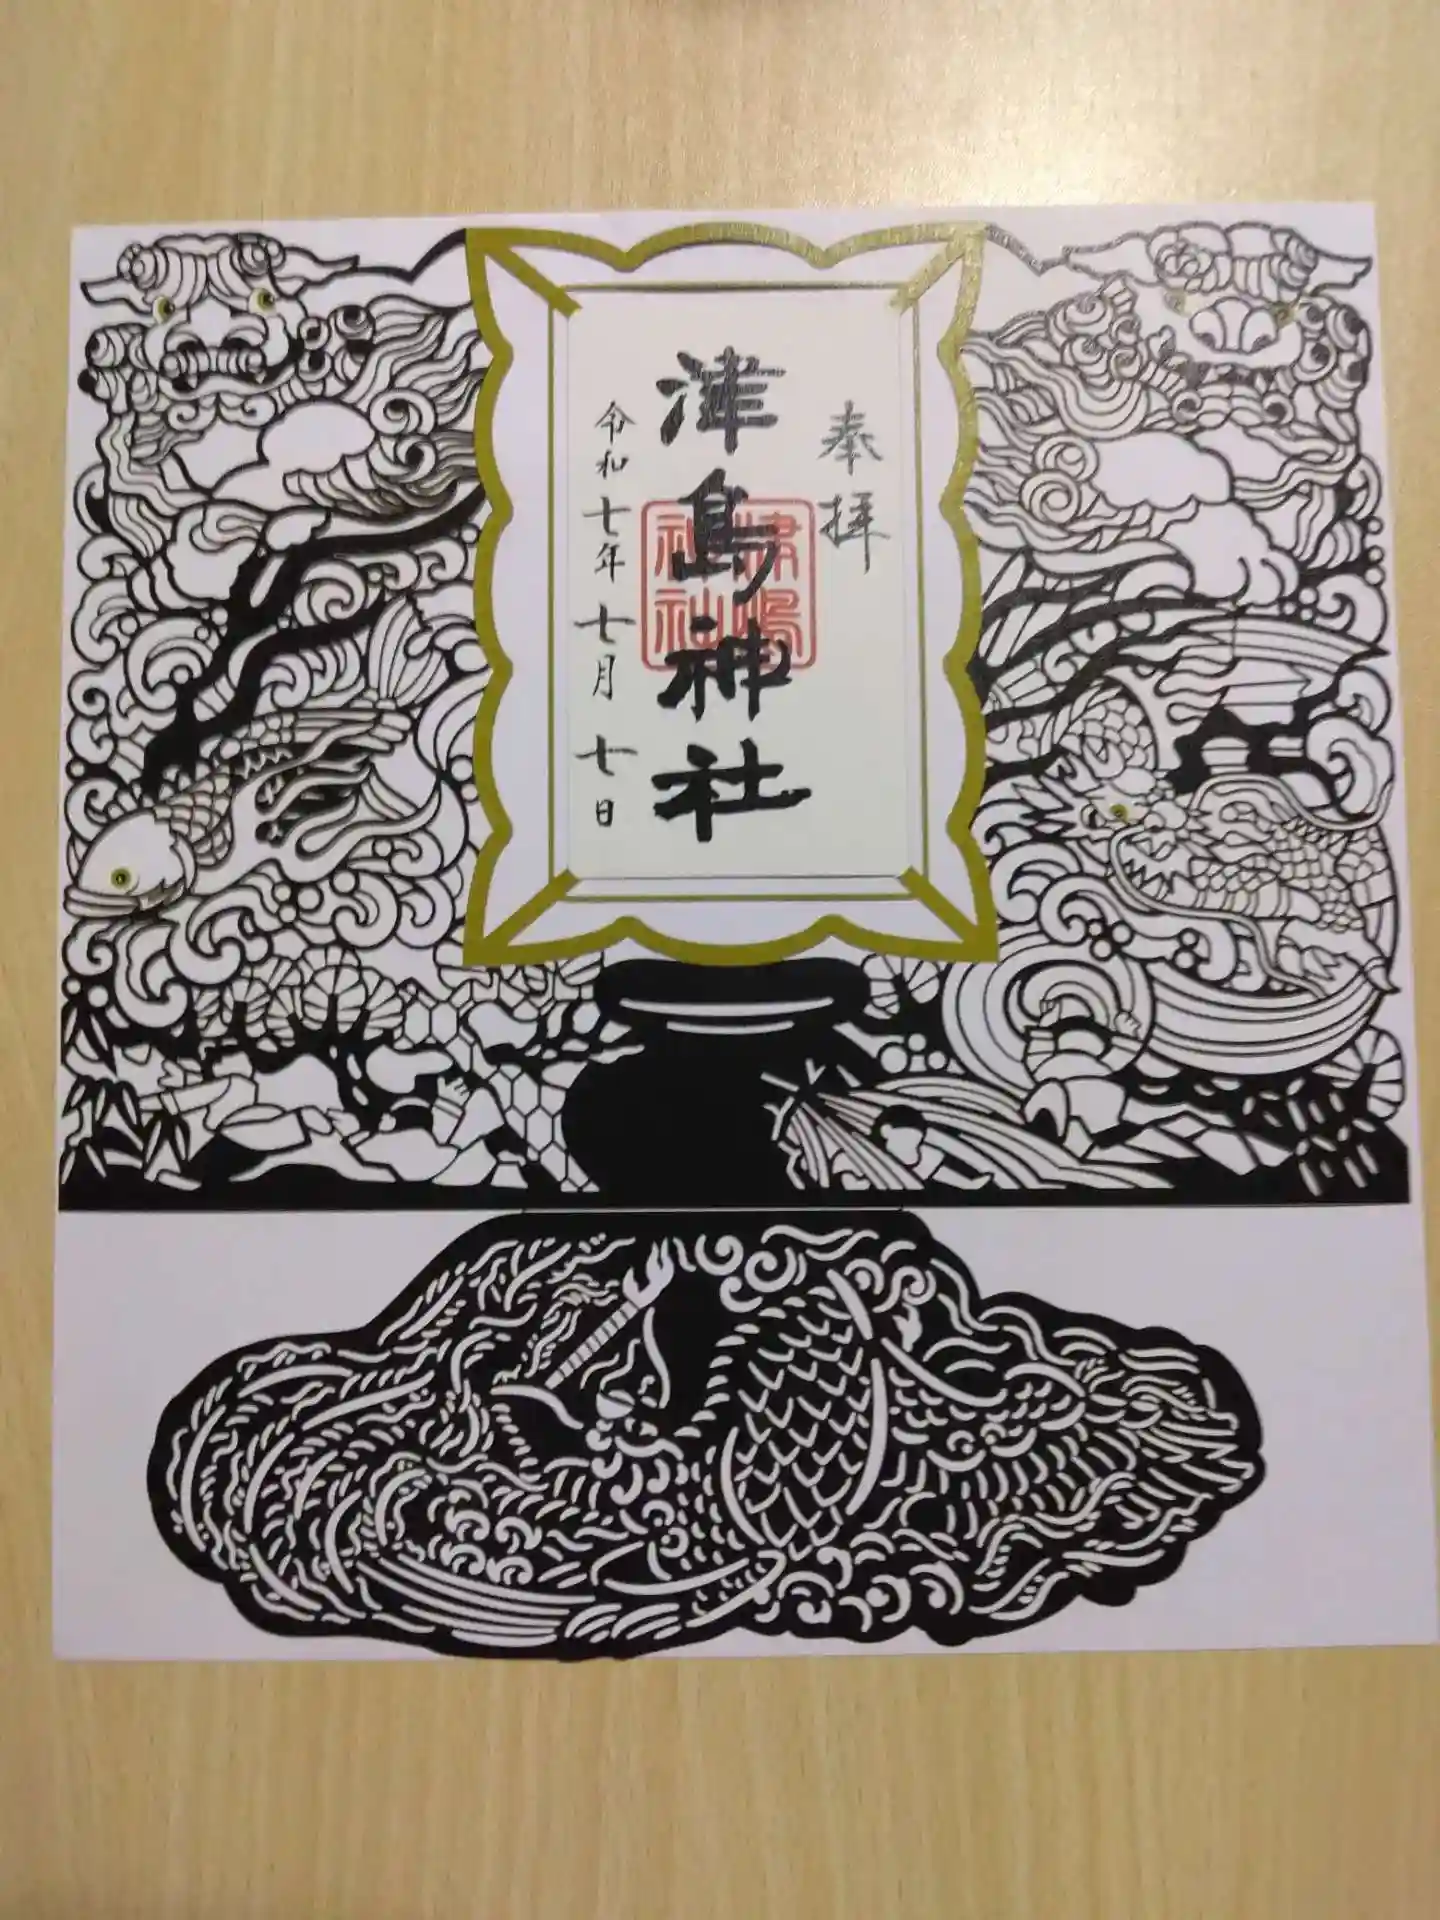 奉拝
津島神社
津島神社
令和七年七月七日